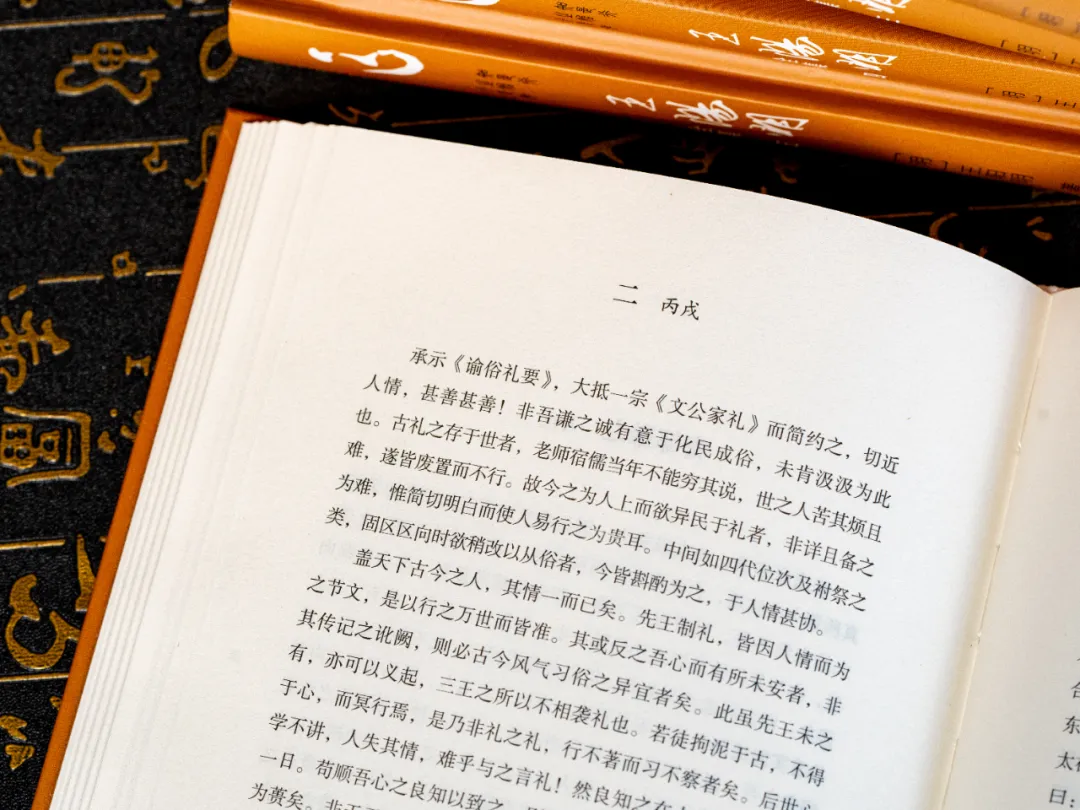 王阳明
王阳明
二 丙戌
承示《谕俗礼要》，大抵一宗《文公家礼》而简约之，切近
人情，甚善甚善！非吾谦之诚有意于化民成俗，未肯汲汲为此
也。古礼之存于世者，老师宿儒当年不能穷其说，世之人苦其烦且
难，遂皆废置而不行。故今之为人上而欲异民于礼者，非详且备之
为难，惟简切明白而使人易行之为贵耳。中间如四代位次及祔祭之
类，固区区向时欲稍改以从俗者，今皆斟酌为之，于人情甚协。
盖天下古今之人，其情一而已矣。先王制礼，皆因人情而为
之节文，是以行之万世而皆准。其或反之吾心而有所未安者，非
其传记之讹阙，则必古今风气习俗之异宜者矣。此虽先王未之
有，亦可以义起，三王之所以不相袭礼也。若徒拘泥于古，不得
于心，而冥行焉，是乃非礼之礼，行不著而习不察者矣。后世心
学不讲，人失其情，难乎与之言礼！然良知之在
一日。苟顺吾心之良知以致之
为赉矣。非天子